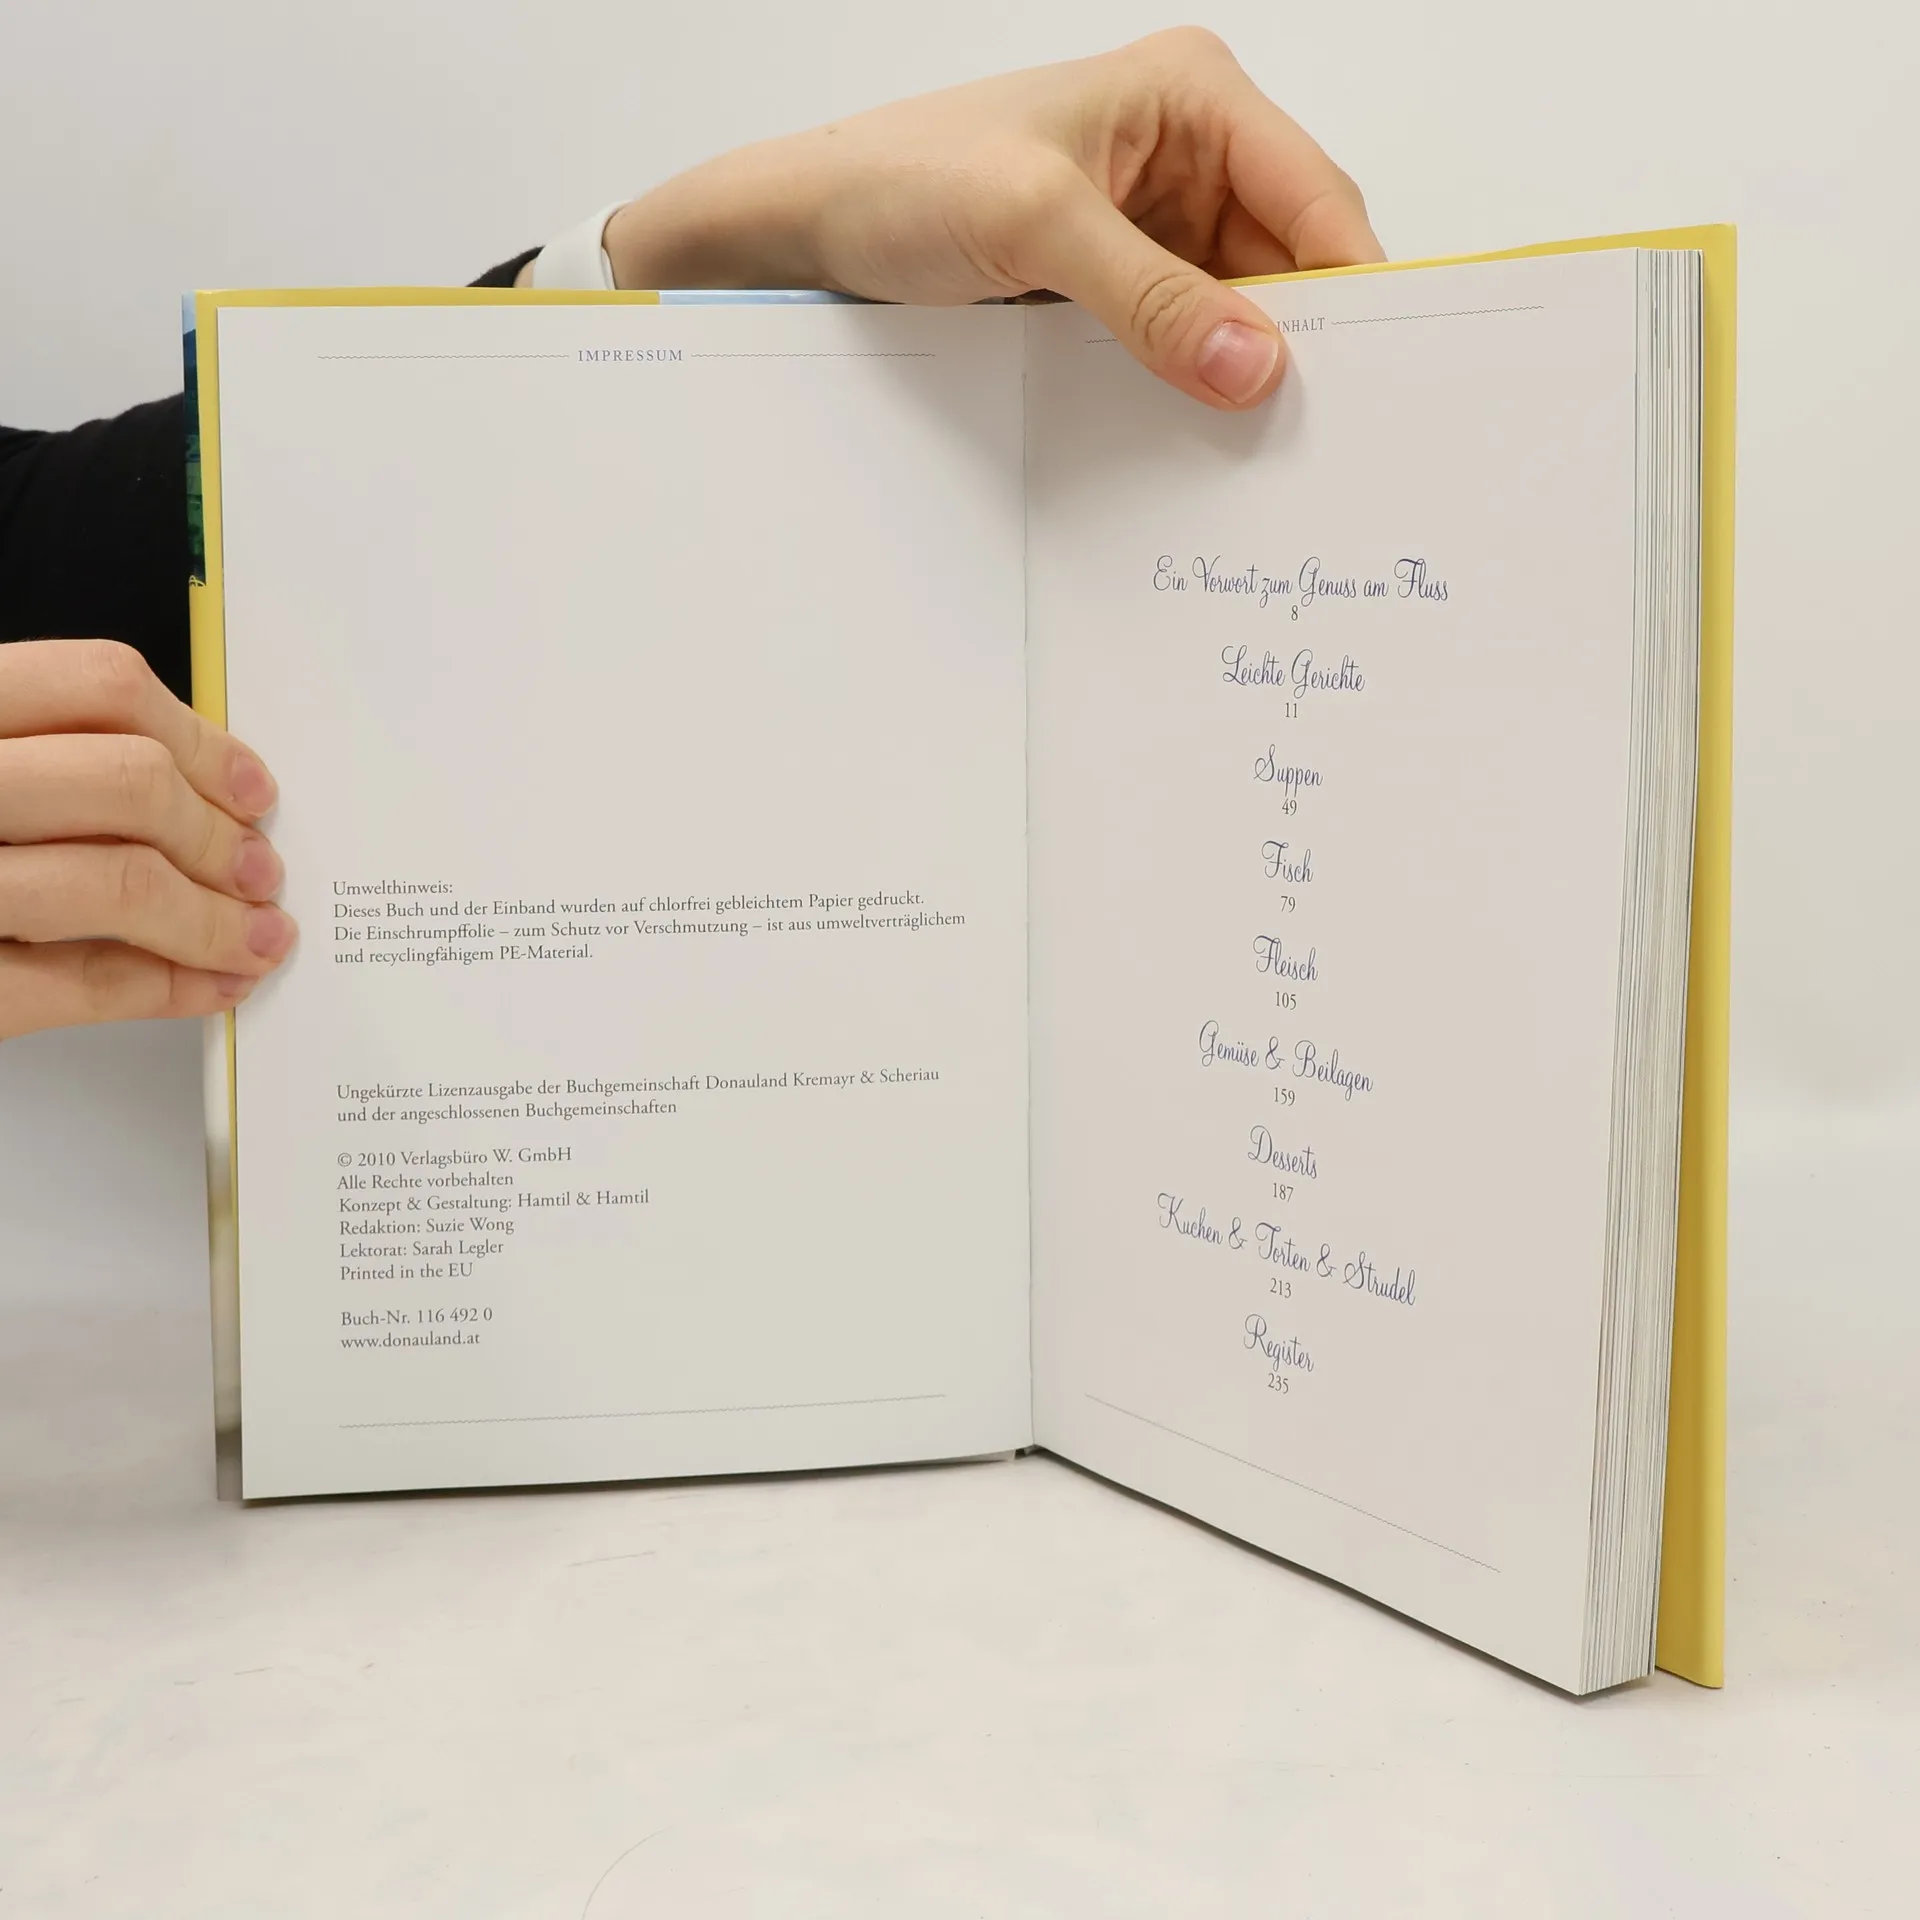 IMPRESSUM
Umwelthinweis:
Dieses Buch und der Einband wurden auf chlorfrei gebleichtem Papier gedruckt.
Die Einschrumpffolie – zum Schutz vor Verschmutzung – ist aus umweltverträglichem
und recyclingfähigem PE-Material.
Ungekürzte Lizenzausgabe der Buchgemeinschaft Donauland Kremayr & Scheriau
und der angeschlossenen Buchgemeinschaften
© 2010 Verlagsbüro W. GmbH
Alle Rechte vorbehalten
Konzept & Gestaltung: Hamtil & Hamtil
Redaktion: Suzie Wong
Lektorat: Sarah Legler
Printed in the EU
Buch-Nr. 116 492 0
www.donauland.at
INHALT
Ein Vorwort zum Genuss am Fluss
8
Leichte Gerichte
11
Suppen
49
Fisch
79
Fleisch
105
Gemüse & Beilagen
159
Desserts
187
Kuchen & Torten & Strudel
213
Register
235